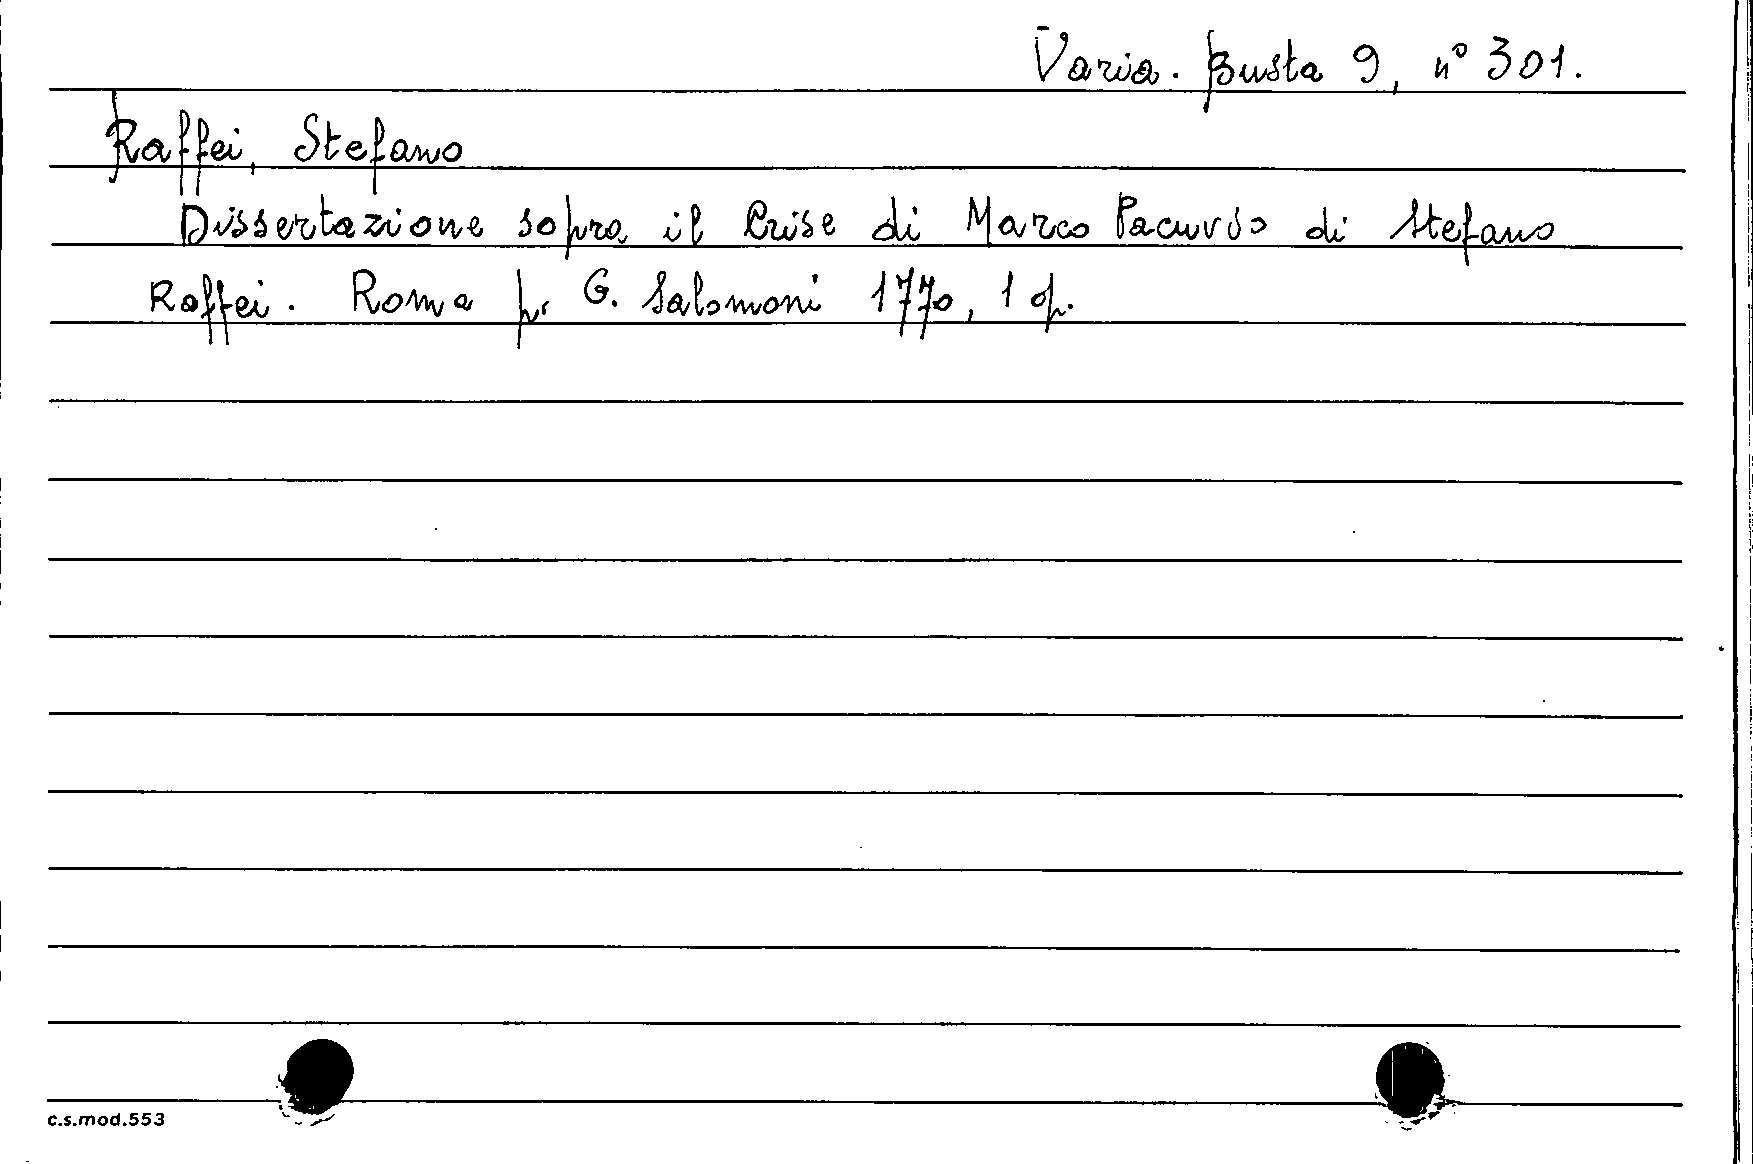 Varia. Busta 9, n° 301.
Raffei, Stefano
Dissertazione sopra il Crise di Marco Pacuvio di Stefano
Raffei. Roma p. G. Salomoni 1770, 1 op.
c.s.mod.553